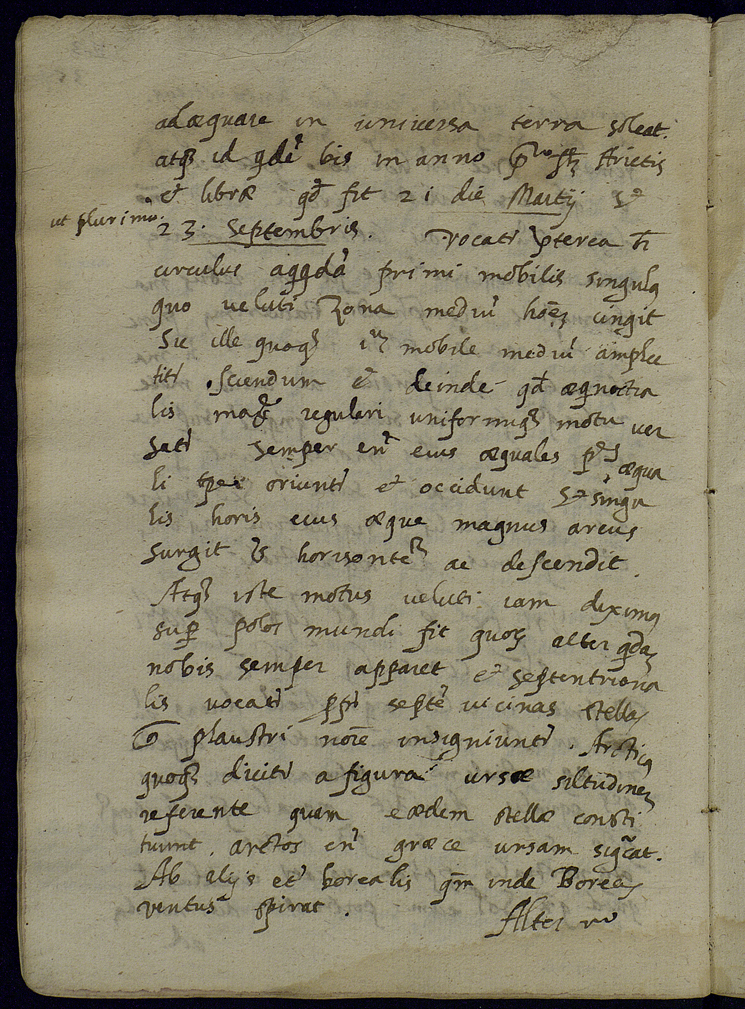 adæquare in universa terra soleat.
atq₃ id qdē bis in anno Arietis
et libræ qđ fit 21 die Martij et
ut plurimū.
23. Septembris. Vocatʳ pterea hic
circulus primi mobilis
quo veluti Zona mediū hoēs cingit
Sic ille quoq₃ mobile mediū amplec
titʳ. Sciendum ē deinde qđ æquoctia
lis regulari uniformiq₃ motu ver
satʳ semper enī eius æquales ptes æqua
li tpe oriuntʳ et occidunt et singu
lis horis eius æque magnus arcus
surgit horisontē ac descendit.
Atq₃ iste motus veluti iam diximꝰ
supr polos mundi fit quoꝝ alter qdē
nobis semper apparet et septentriona
lis vocatʳ ꝓptʳ septē vicinas stellas
plaustri noīe insigniuntʳ. Arcticꝰ
quoq₃ dicitʳ a figura ursæ siltudinē
referente quam eædem stellæ consti
tuunt. arctos enī græce ursam sigcat.
Ab alijs etʳ borealis qm̄ inde Boreas
ventus spirat.
Alter vº